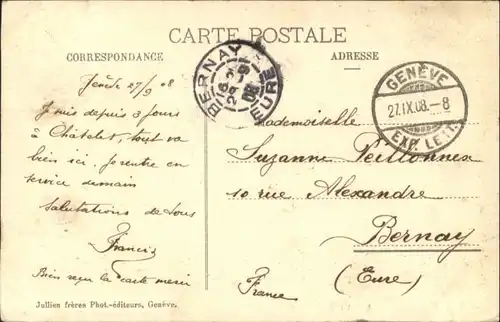 CARTE POSTALE
CORRESPONDANCE
ADRESSE
BERNAY
EURE
GENÈVE
27.IX.08.—8
EXP. LETT.
27/9 08
Je suis depuis 3 jours
à Châtelet, tout va
bien ici, Je rentre en
service demain
Salutations de tous
Francis
Bien reçu la carte merci
Mademoiselle
Suzanne Peillonnex
10 rue Alexandre
Bernay
(Eure)
France
Jullien frères Phot.-éditeurs, Genève.